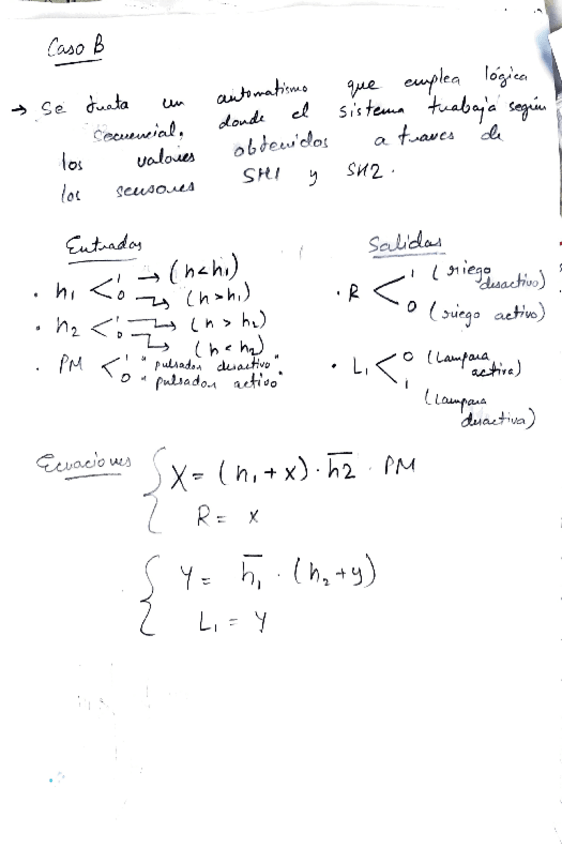 Caso B
→ Se trata un automatismo que emplea lógica
secuencial, donde el sistema trabaja según
los valores obtenidos a traves de
los sensores SH1 y SH2.
Entradas
Salidas
. h₁ < 1 → (h<h₁)
0 → (h>h₁)
. h₂ < 1 → (h > h₂)
0 → (h < h₂)
. PM < 1 "pulsador desactivo".
0 "pulsador activo".
. R < 1 (riego desactivo)
0 (riego activo)
. L₁ < 0 (Lampara activa)
1 (Lampara desactiva)
Ecuaciones { X = (h₁ + x) · h̅2̅ · PM
R = x
{ Y = h̅₁ · (h₂ + y)
L₁ = Y